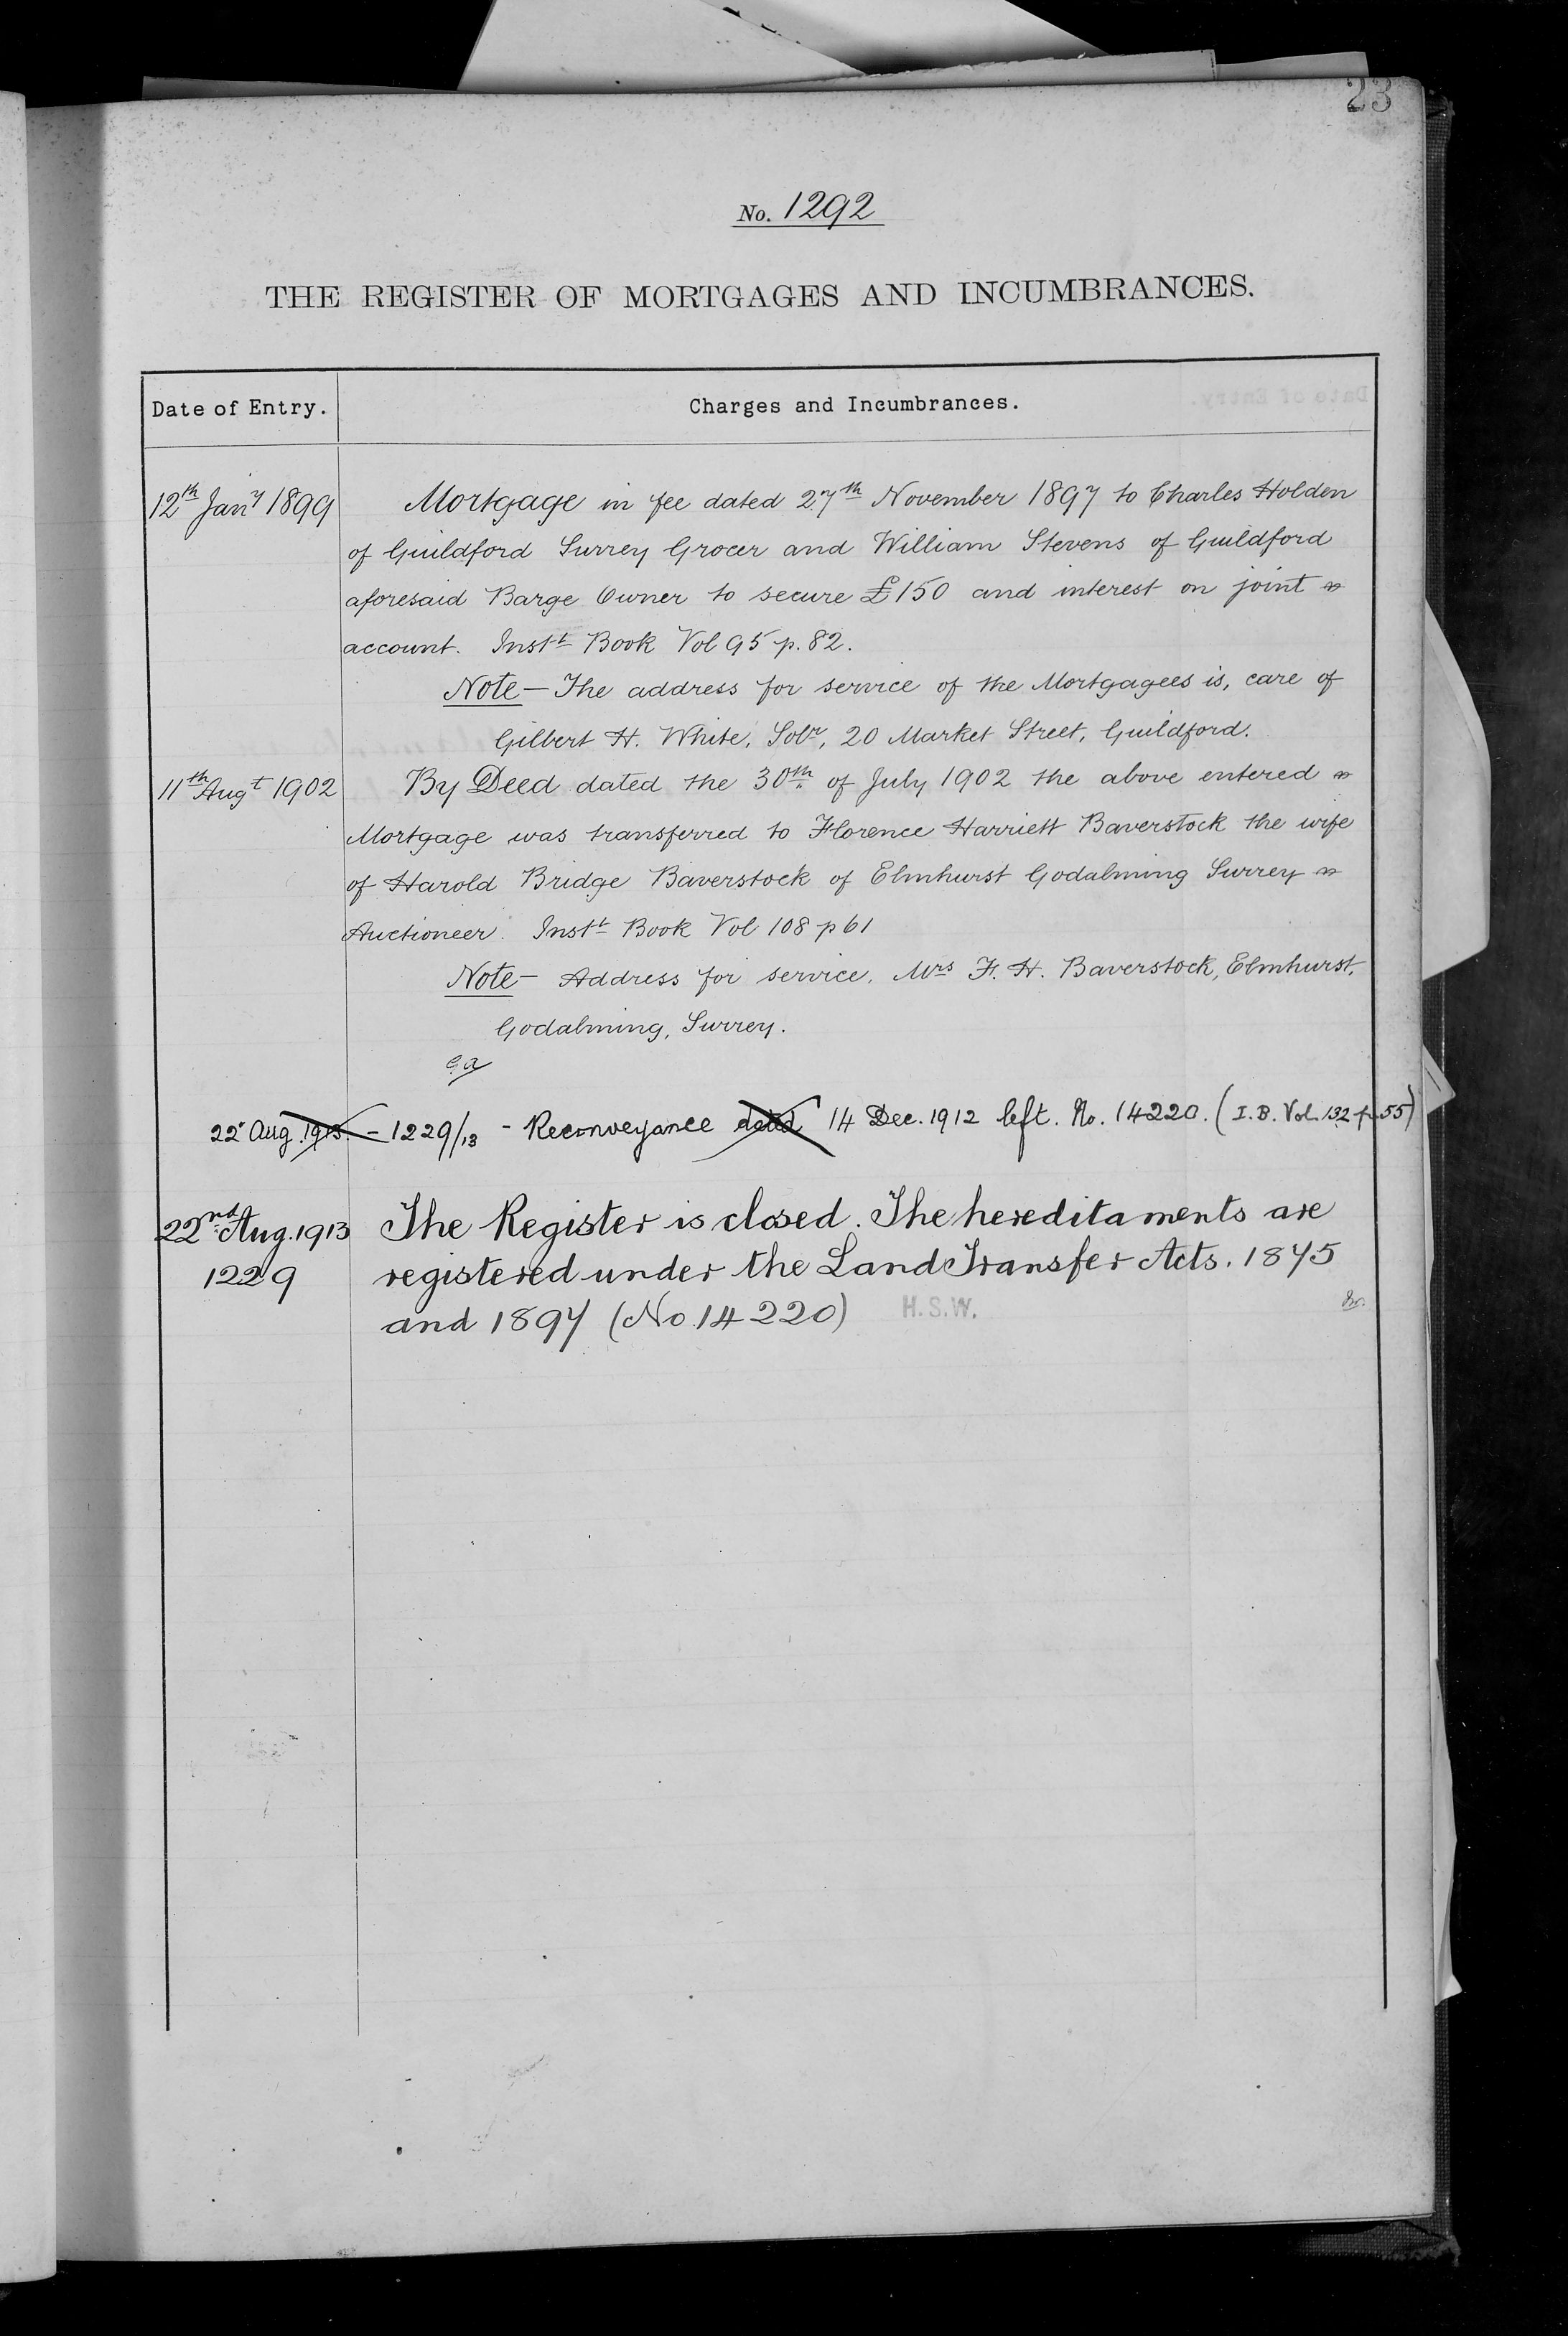 23
No. 1292
THE REGISTER OF MORTGAGES AND INCUMBRANCES.
Date of Entry. Charges and Incumbrances.
12th Jany 1899 Mortgage in fee dated 27th November 1897 to Charles Holden
of Guildford Surrey Grocer and William Stevens of Guildford
aforesaid Barge Owner to secure £150 and interest on joint
account. Instt Book Vol 95 p. 82.
Note — The address for service of the Mortgagees is, care of
Gilbert H. White, Solr, 20 Market Street, Guildford.
11th Augt 1902 By Deed dated the 30th of July 1902 the above entered
Mortgage was transferred to Florence Harriett Baverstock the wife
of Harold Bridge Baverstock of Elmhurst Godalming Surrey
Auctioneer. Instt Book Vol 108 p 61
Note — Address for service, Mrs F. H. Baverstock, Elmhurst,
Godalming, Surrey.
22 Aug. 1913. – 1229/13 - Reconveyance dated 14 Dec. 1912 left. No. 14220. (I.B. Vol. 132 p. 55)
22nd Aug. 1913 The Register is closed. The hereditaments are
1229 registered under the Land Transfer Acts. 1875
and 1897 (No. 14220) H.S.W.